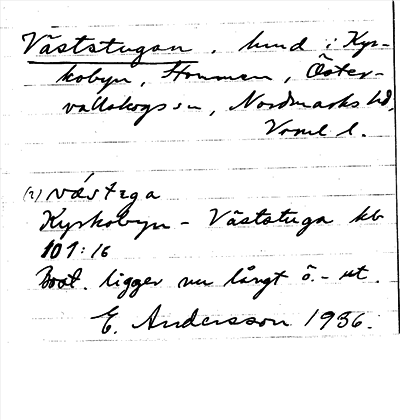 Väststugan, hmd i Kyr-
kobyn, Hommen, Öster-
vallskogs sn, Nordmarks hd,
Vrml l.
(2) västega
Kyrkobyn - Väststuga kb
101:16
Bost. ligger nu långt ö.- ut.
E. Andersson 1936.